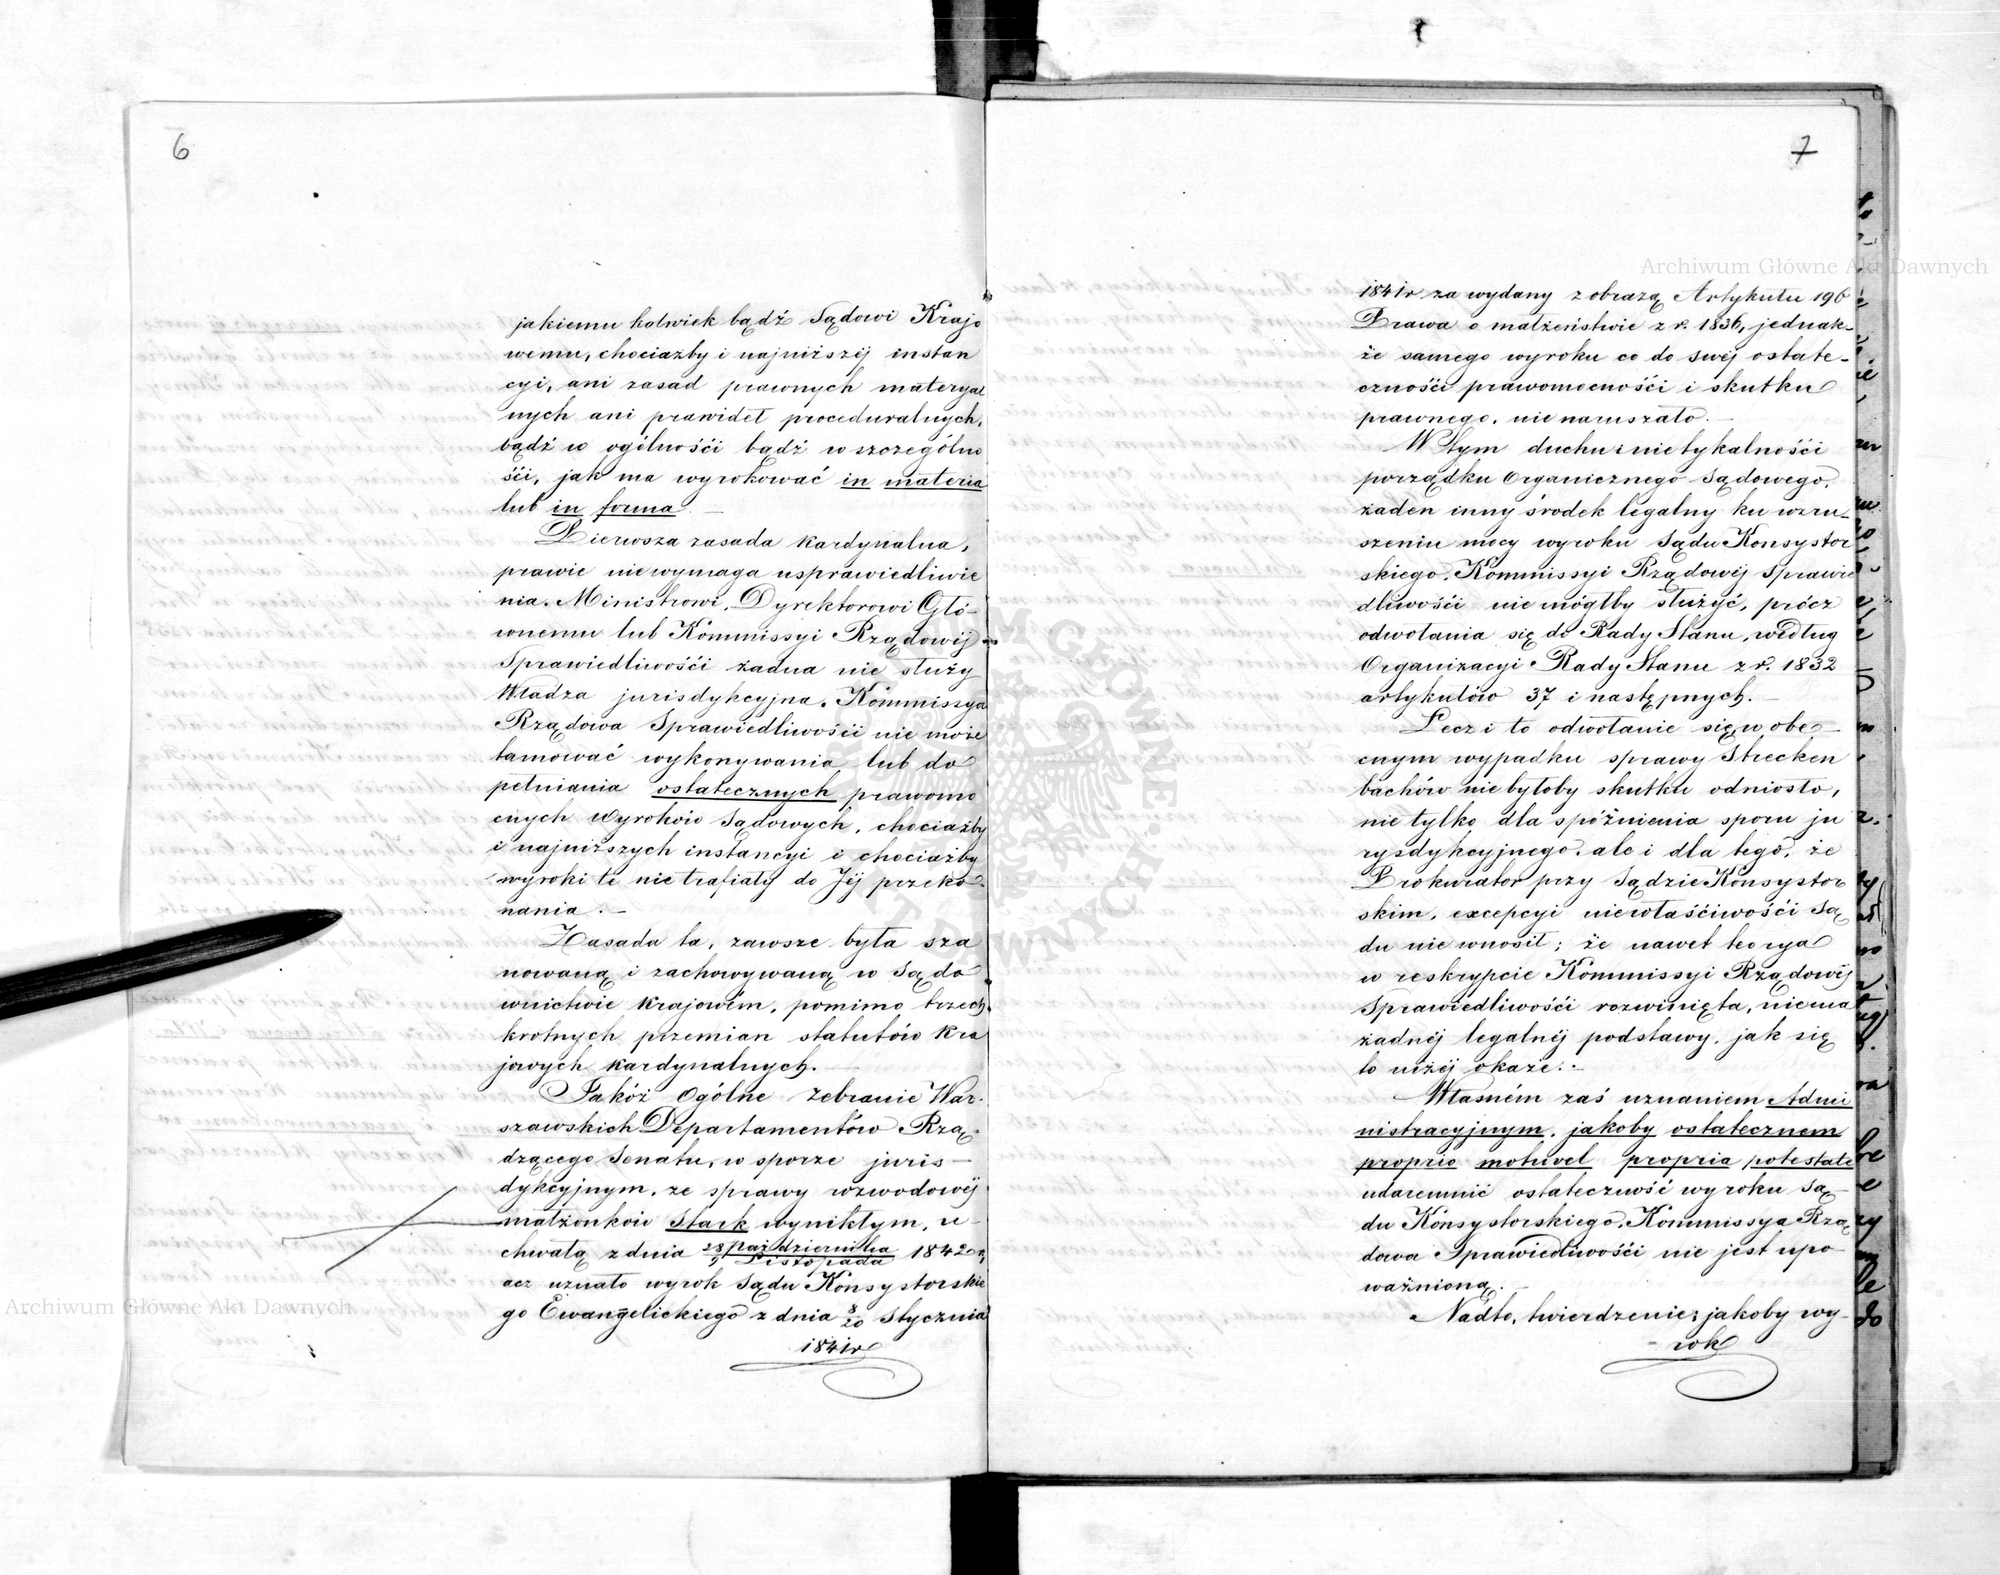 6
jakiemu kolwiek bądź Sądowi Krajo
wemu, chociażby i najniższéj instan
cyi, ani zasad prawnych materyal
nych ani prawideł proceduralnych,
bądź w ogólności bądź w szczególno
ści, jak ma wyrokować in materia
lub in forma. —
Pierwsza zasada kardynalna,
prawie niewymaga usprawiedliwie
nia. Ministrowi, Dyrektorowi Głó-
wnemu lub Kommissyi Rządowéj
Sprawiedliwości żadna nie służy
Władza jurisdykcyjna. Kommissya
Rządowa Sprawiedliwości nie może
tamować wykonywania lub do
pełniania ostatecznych prawomo
cnych Wyroków Sądowych, chociażby
i najniższych instancyi i chociażby
wyroki te nie trafiały do Jéj przeko-
nania. —
Zasada ta, zawsze była sza
nowaną i zachowywaną w Sądo
wnictwie Krajowém, pomimo trzech
krotnych przemian statutów Kra
jowych kardynalnych. —
Jakóż Ogólne Zebranie War-
szawskich Departamentów Rzą-
dzącego Senatu, w sporze juris-
dykcyjnym, ze sprawy rozwodowéj
małżonków Stark wynikłym, u-
chwałą z dnia 28 Października / 9 Listopada 1842 r,
acz uznało wyrok Sądu Konsystorskie
go Ewangelickiego z dnia 8/20 Stycznia
1841r
7
1841r za wydany z obrazą Artykułu 196
Prawa o małżeństwie z r. 1836, jednak-
że samego wyroku co do swéj ostate-
czności prawomocności i skutku
prawnego, nie naruszało. —
W tym duchu nietykalności
porządku Organicznego Sądowego,
żaden inny środek legalny ku wzru-
szeniu mocy wyroku Sądu Konsystor
skiego, Kommissyi Rządowéj Sprawie
dliwości nie mógłby służyć, prócz
odwołania się do Rady Stanu, według
Organizacyi Rady Stanu z r. 1832
artykułów 37 i następnych. —
Lecz i to odwołanie się w obe-
cnym wypadku sprawy Strecken
bachów nie byłoby skutku odniosło,
nie tylko dla spóźnienia sporu ju
rysdykcyjnego, ale i dla tego, że
Prokurator przy Sądzie Konsystor
skim, excepcyi niewłaściwości Są
du nie wnosił; że nawet teorya
w reskrypcie Kommissyi Rządowéj
Sprawiedliwości rozwinięta, niema
żadnéj legalnéj podstawy, jak się
to niżéj okaże. —
Własném zaś uznaniem Admi
nistracyjnym, jakoby ostatecznem
proprio motu vel propria potestate
udaremnić ostateczność wyroku Są-
du Konsystorskiego, Kommissya Rzą
dowa Sprawiedliwości nie jest upo-
ważnioną. —
Nadto, twierdzenie; jakoby wy-
- rok
Archiwum Główne Akt Dawnych
Archiwum Główne Akt Dawnych